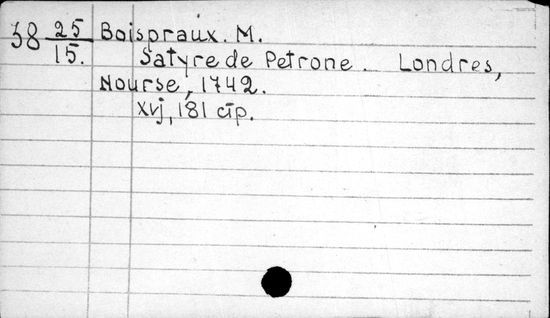 38 25/15. Boispraux. M.
Satyre de Petrone. Londres,
Nourse, 1742.
xvj, 181 стр.